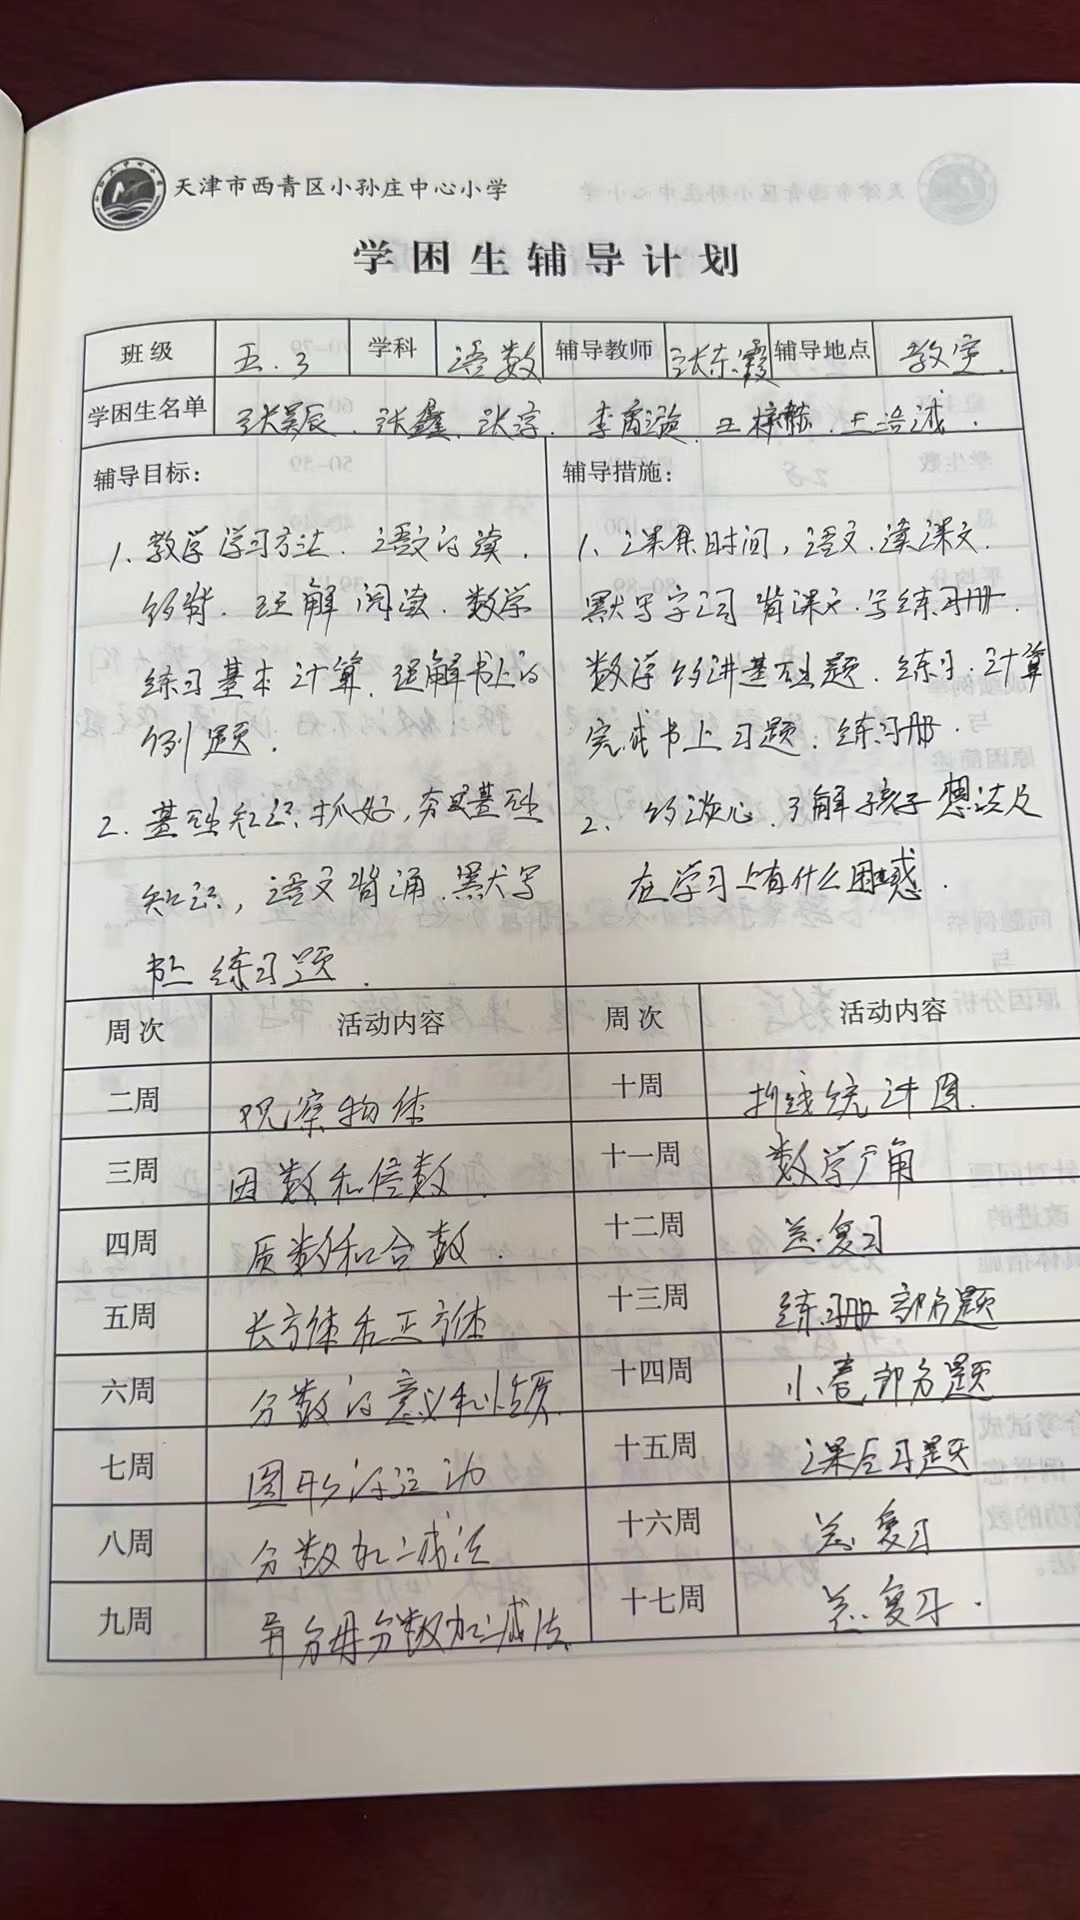 天津市西青区小孙庄中心小学
学困生辅导计划
班级 五.3 学科 语数 辅导教师 张东霞 辅导地点 教室.
学困生名单 张昊辰. 张鑫. 张字. 李 王梓赫. 王浩诚.
辅导目标:
1. 教学学习方法. 语文的读.
的背. 理解阅读. 数学
练习基本计算. 理解书上的
例题.
2. 基础知识抓好, 夯实基础
知识, 语文背诵. 默写
书上练习题.
辅导措施:
1. 课余时间, 语文. 读课文.
默写字词 背课文. 写练习册.
数学的讲基础题. 练习. 计算
完成书上习题. 练习册.
2. 的谈心. 了解孩子想法及
在学习上有什么困惑.
周次 活动内容 周次 活动内容
二周 观察物体 十周 折线统计图.
三周 因数和倍数. 十一周 数学广角
四周 质数和合数. 十二周 总复习
五周 长方体和正方体 十三周 练习册部分题
六周 分数的意义和性质. 十四周 小卷部分题
七周 图形的运动 十五周 课后习题
八周 分数加减法 十六周 总复习
九周 异分母分数加减法. 十七周 总复习.